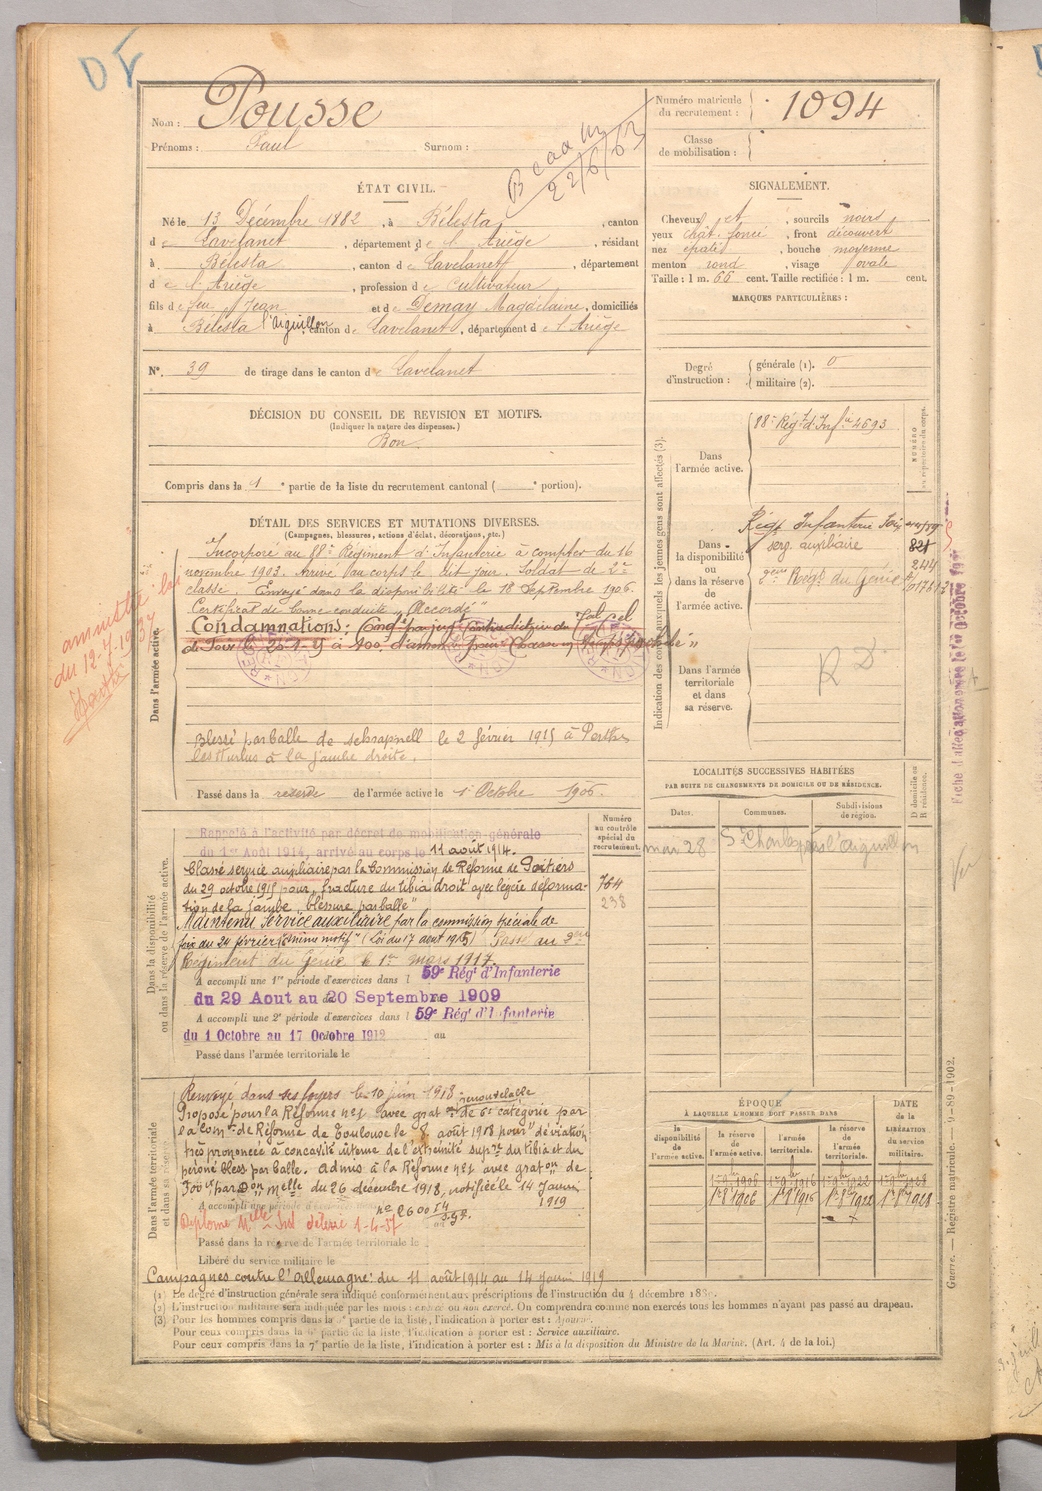 DV
Nom : Pousse
Prénoms : Paul Surnom :
22/6/62
Numéro matricule du recrutement : 1094
Classe de mobilisation :
ÉTAT CIVIL.
Né le 13 Décembre 1882, à Bélesta, canton
de Lavelanet, département de l'Ariège, résidant
à Bélesta, canton de Lavelanet, département
de l'Ariège, profession de Cultivateur
fils de feu Jean et de Demay Magdelaine, domiciliés
à Bélesta l'Aiguillon, canton de Lavelanet, département de l'Ariège
N°. 39 de tirage dans le canton de Lavelanet
SIGNALEMENT.
Cheveux et, sourcils noirs
yeux chât. foncé, front découvert
nez épaté, bouche moyenne
menton rond, visage ovale
Taille : 1 m. 66 cent. Taille rectifiée : 1 m. cent.
MARQUES PARTICULIÈRES :
Degré d'instruction : générale (1). 0
militaire (2).
DÉCISION DU CONSEIL DE REVISION ET MOTIFS.
(Indiquer la nature des dispenses.)
Bon
Compris dans la 1e partie de la liste du recrutement cantonal ( portion).
DÉTAIL DES SERVICES ET MUTATIONS DIVERSES.
(Campagnes, blessures, actions d'éclat, décorations, etc.)
Dans l'armée active.
Incorporé au 88e Régiment d'Infanterie à compter du 16
novembre 1903. Arrivé au corps le dit jour. Soldat de 2e
classe. Envoyé dans la disponibilité le 18 Septembre 1906.
Certificat de bonne conduite "Accordé"
Condamnations : Cond° par jugt contradictoire du Tal cel
de Foix à 100 d'amende pour Chasse en temps prohibé"
amnistié loi
du 12-7-1937
Blessé par balle de schrapnell le 2 février 1915 à Perthes
les Hurlus à la jambe droite.
Passé dans la réserve de l'armée active le 1er Octobre 1906.
Indication des corps auxquels les jeunes gens sont affectés (3).
NUMÉRO au répertoire du corps.
Dans l'armée active.
88e Régt d'Infie 4693
Dans la disponibilité ou dans la réserve de l'armée active.
Régt Infanterie Foix
serv. auxiliaire
821
244
2ème Régt du Génie
Dans l'armée territoriale et dans sa réserve.
R D.
LOCALITÉS SUCCESSIVES HABITÉES
PAR SUITE DE CHANGEMENTS DE DOMICILE OU DE RÉSIDENCE.
Dates. Communes. Subdivisions de région. D domicile ou R résidence.
mai 28 St Charles près l'aiguillon
Dans la disponibilité ou dans la réserve de l'armée active.
Numéro au contrôle spécial du recrutement.
764
238
Rappelé à l'activité par décret de mobilisation générale
du 1er Août 1914, arrivé au corps le 11 août 1914.
Classé service auxiliaire par la Commission de Réforme de Poitiers
du 29 octobre 1915 pour "fracture du tibia droit avec légère déforma-
tion de la jambe, blessure par balle"
Maintenu service auxiliaire par la commission spéciale de
foix du 24 février "même motif" (Loi du 17 août 1915) Passé au 2ème
Régiment du Génie le 1er mars 1917.
A accompli une 1re période d'exercices dans l 59e Régt d'Infanterie
du 29 Aout au 20 Septembre 1909
A accompli une 2e période d'exercices dans l 59e Régt d'Infanterie
du 1 Octobre au 17 Octobre 1912 au
Passé dans l'armée territoriale le
Dans l'armée territoriale et dans sa réserve.
Renvoyé dans ses foyers le 10 juin 1918
Proposé pour la Réforme n°1 avec grat on de 6e catégorie par
la Comon de Réforme de Toulouse le 8 août 1918 pour "déviation
très prononcée à concavité interne de l'extrémité supre du tibia et du
péroné bless par balle. Admis à la Réforme n°1 avec graton de
par Don Mlle du 26 décembre 1918, notifiée le 14 Janvier
1919
A accompli une période d'exercices
Diplôme
1-4-37
Passé dans la réserve de l'armée territoriale le
Libéré du service militaire le
Campagnes contre l'Allemagne : du 11 août 1914 au 14 Janvier 1919
ÉPOQUE
À LAQUELLE L'HOMME DOIT PASSER DANS
la disponibilité de l'armée active. la réserve de l'armée active. l'armée territoriale. la réserve de l'armée territoriale. DATE de la LIBÉRATION du service militaire.
1er 8bre 1906 1er 8bre 1916 1er 8bre 1922 1er 8bre 1928
(1) Le degré d'instruction générale sera indiqué conformément aux prescriptions de l'instruction du 4 décembre 188
(2) L'instruction militaire sera indiquée par les mots : exercé ou non exercé. On comprendra comme non exercés tous les hommes n'ayant pas passé au drapeau.
(3) Pour les hommes compris dans la 5e partie de la liste, l'indication à porter est : Ajourné.
Pour ceux compris dans la 6e partie de la liste, l'indication à porter est : Service auxiliaire.
Pour ceux compris dans la 7e partie de la liste, l'indication à porter est : Mis à la disposition du Ministre de la Marine. (Art. 4 de la loi.)
Guerre. — Registre matricule. 9-89-1902.